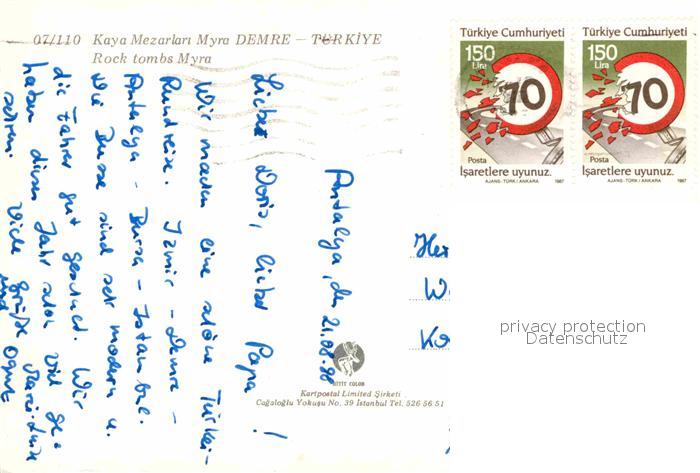 07/110 Kaya Mezarları Myra DEMRE – TÜRKİYE
Rock tombs Myra
Antalya, den 21.08.90
Liebe Doris, lieber Papa!
Wir machen eine schöne Türkei-
Rundreise. Izmir – Demre –
Antalya – Bursa – Istanbul.
Die Busse sind sehr modern u.
die Fahrer gut geschult. Wir
haben dieses Jahr schon viel ge-
sehen. Viele Grüße
und
Türkiye Cumhuriyeti
150
Lira
70
Posta
İşaretlere uyunuz.
AJANS-TÜRK / ANKARA 1987
Türkiye Cumhuriyeti
150
Lira
70
Posta
İşaretlere uyunuz.
AJANS-TÜRK / ANKARA 1987
Her
W
Ko
privacy protection
Datenschutz
HITIT COLOR
Kartpostal Limited Şirketi
Cağaloğlu Yokuşu No. 39 İstanbul Tel. 526 56 51